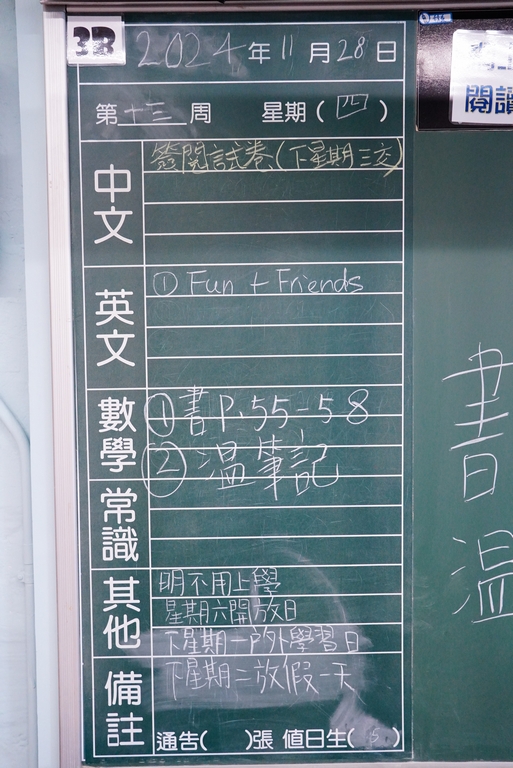 3B
2024年11月28日
第十三周 星期(四)
中文
簽閱試卷(下星期三交)
英文
① Fun + Friends
數學
① 書 P.55-58
② 温筆記
常識
其他
明不用上學
星期六開放日
下星期一戶外學習日
備註
下星期二放假一天
通告( )張 值日生(5)
閱讀
書
温